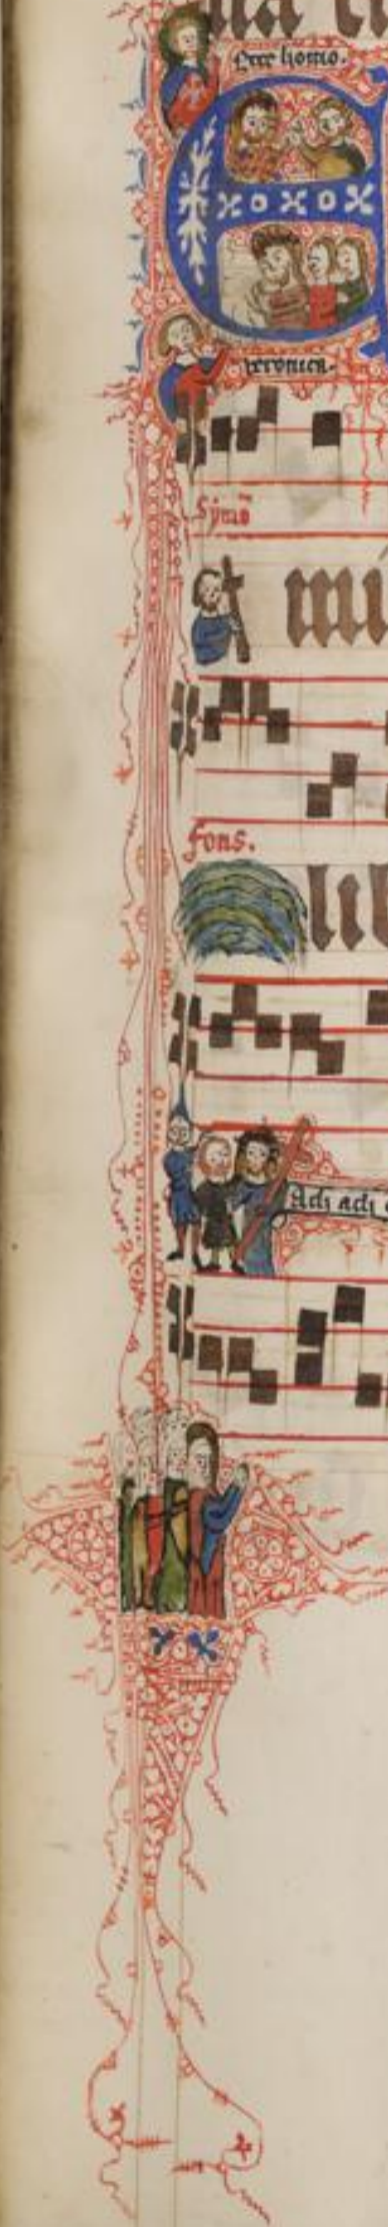 Ecce homo.
veronica.
Symō
mi
fons.
lib
Ach ach